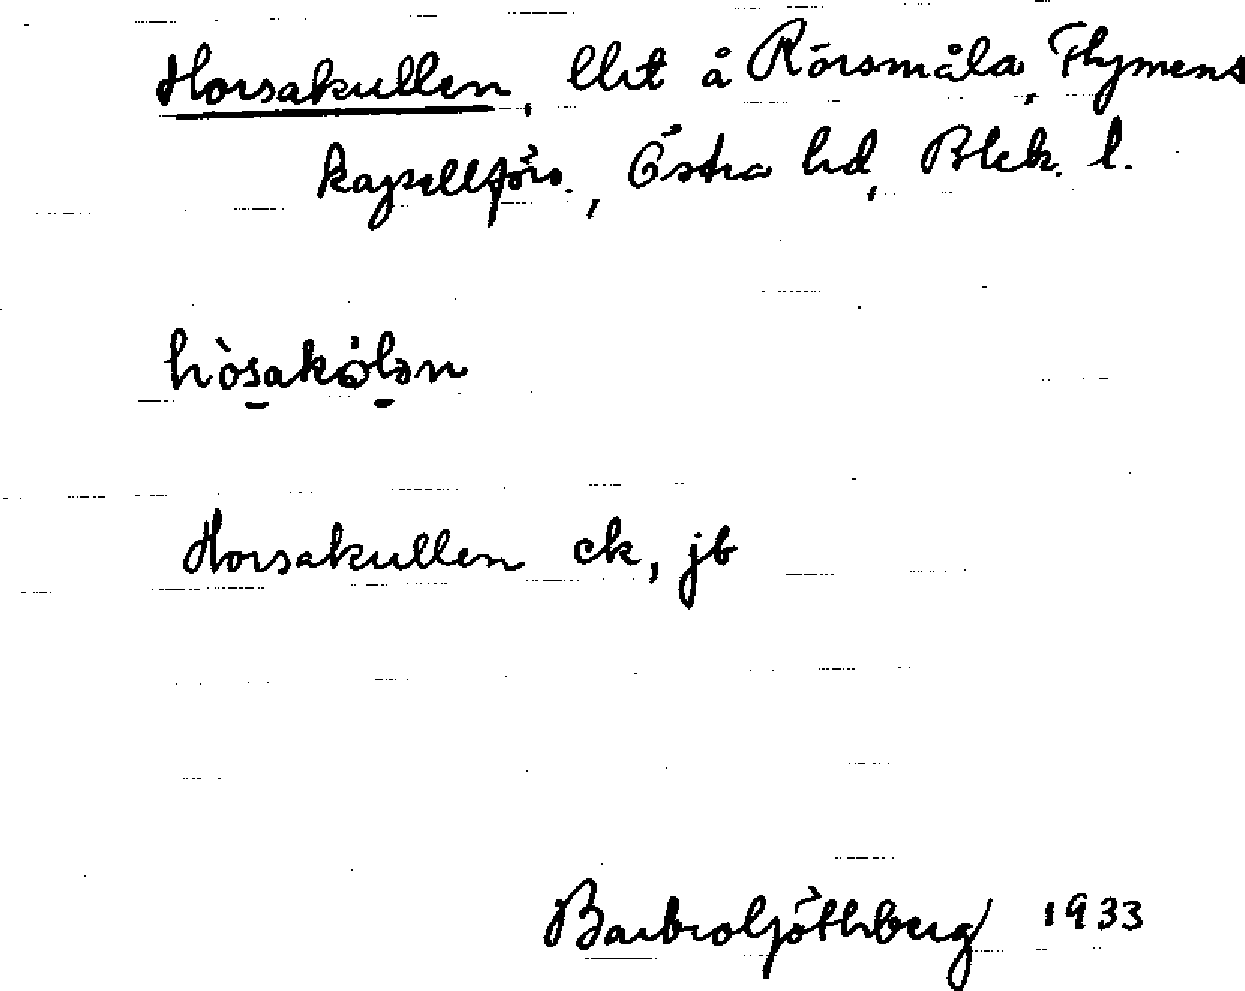 Horsakullen, lht å Rörsmåla, Flymens
kapellförs., Östra hd, Blek. l.
hòsakȯlən
Horsakullen ek, jb
Barbro Göthberg 1933